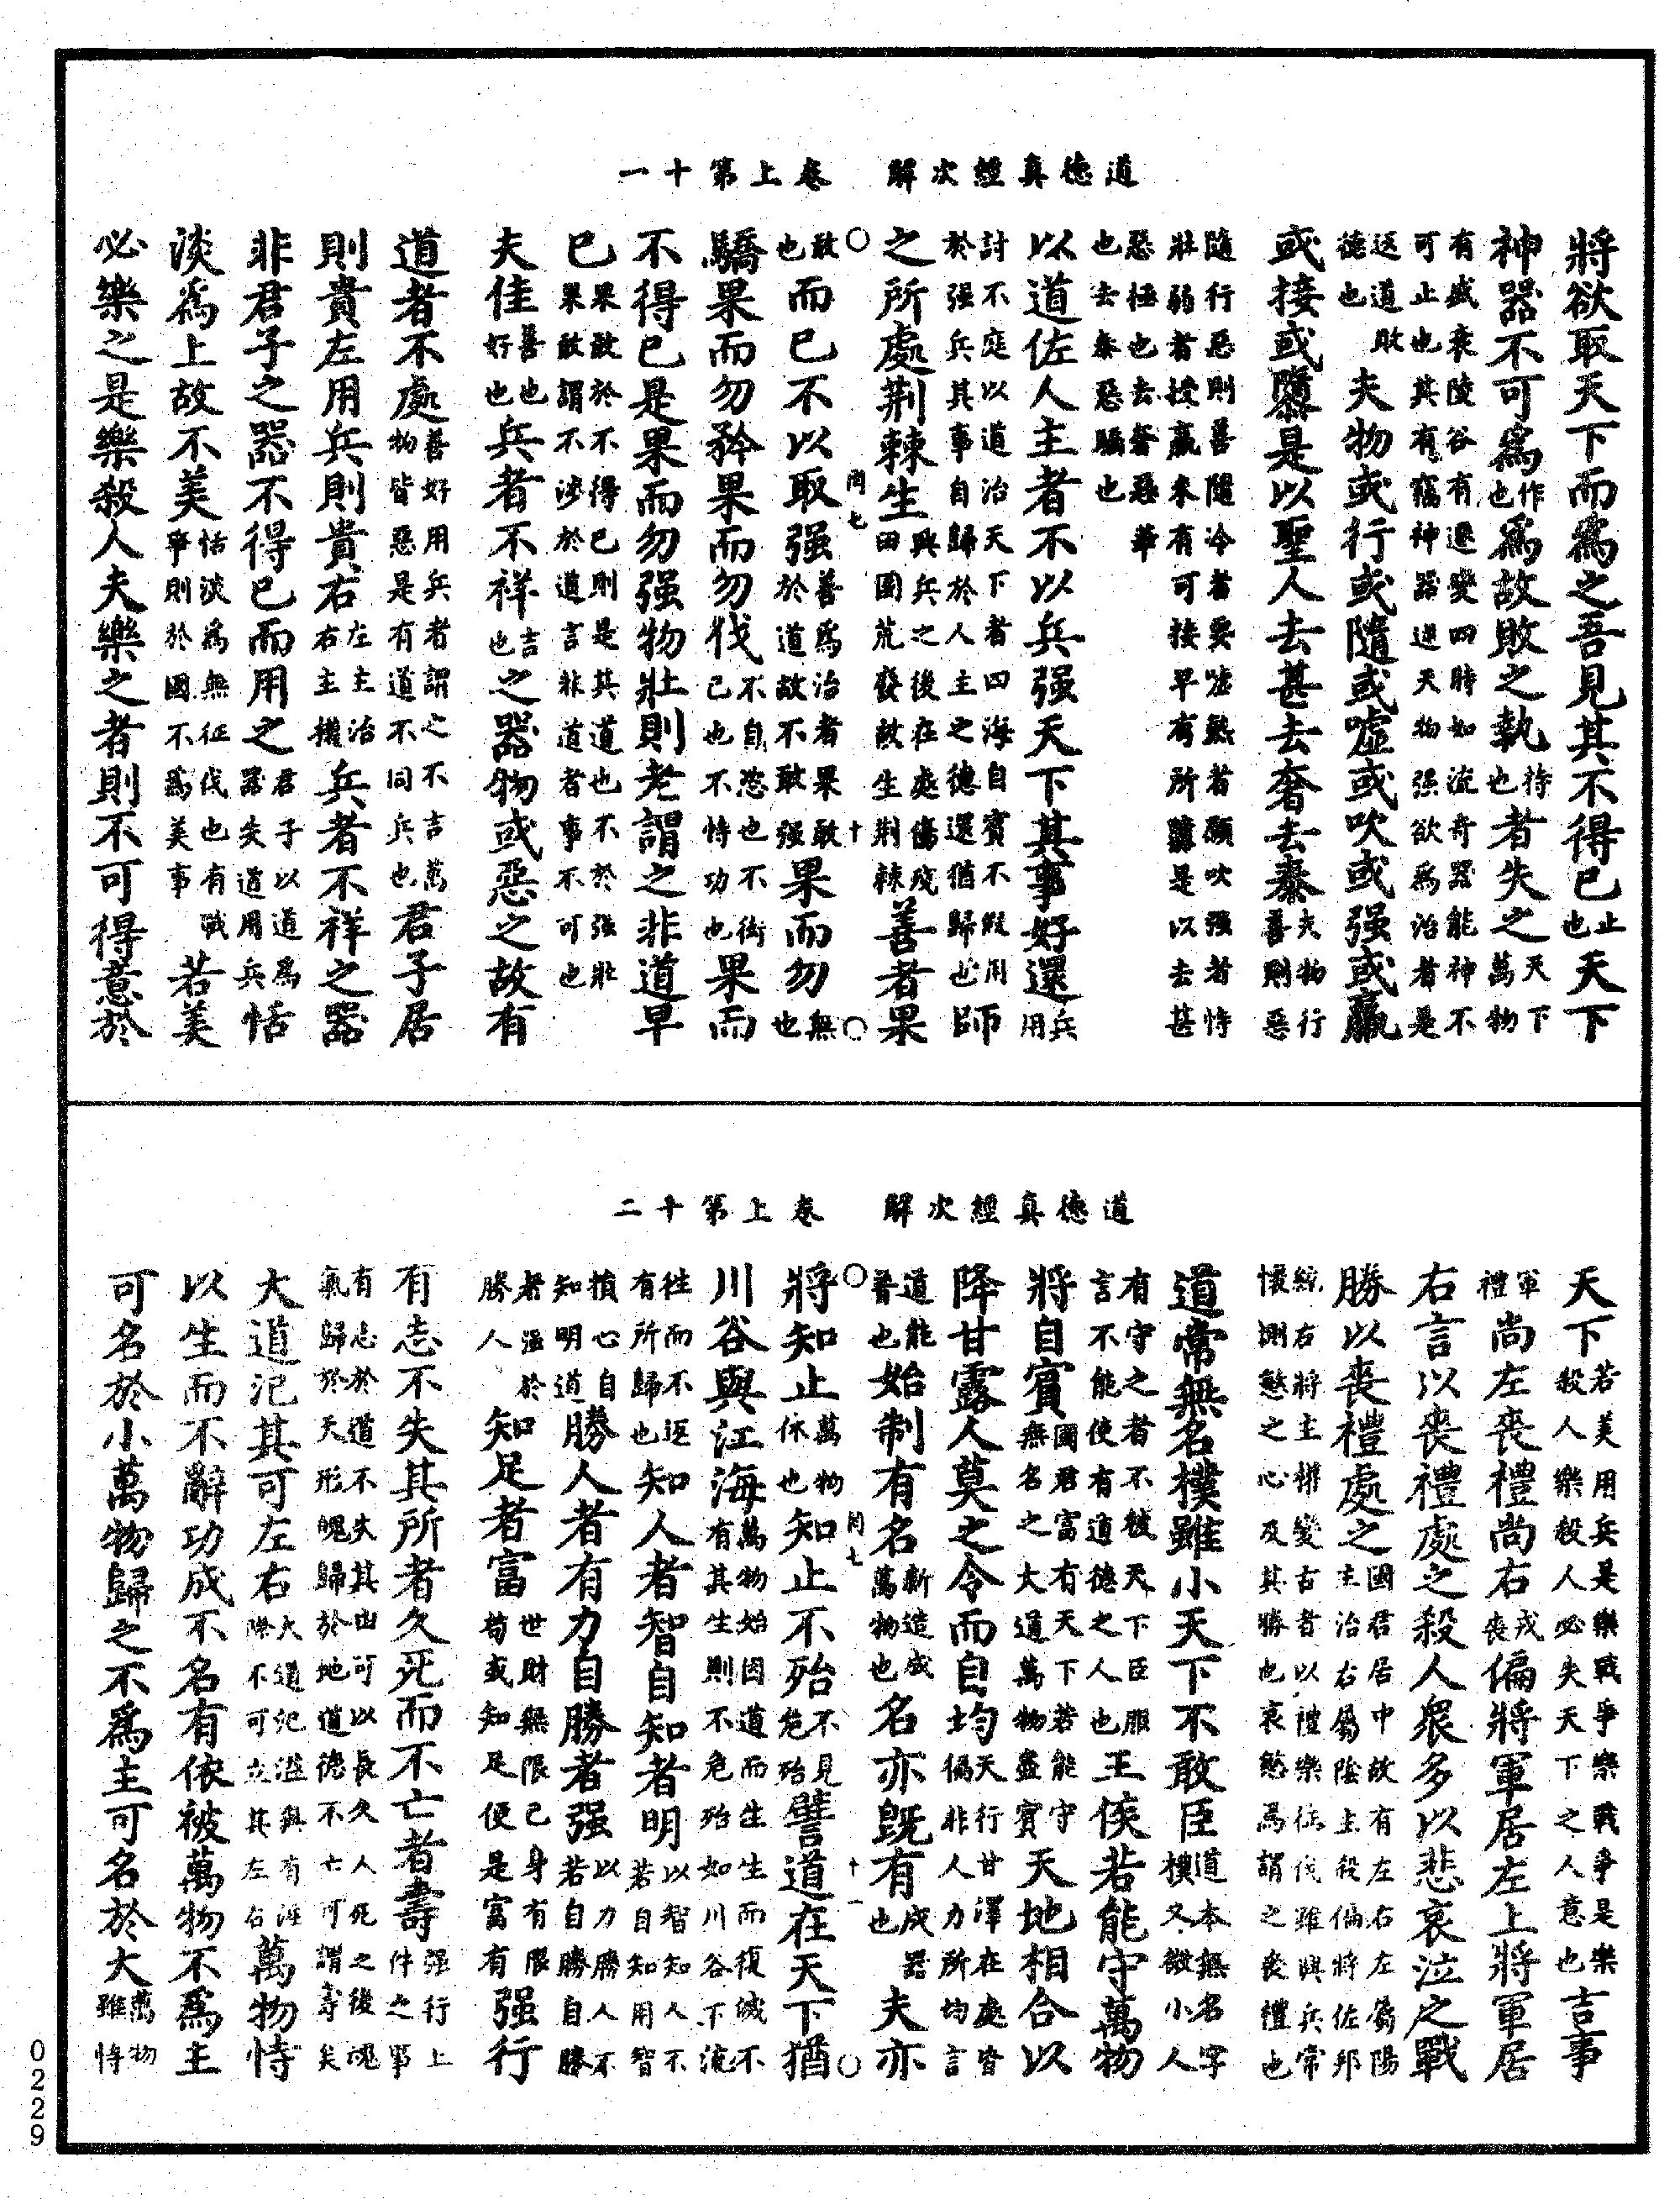 道德真經次解　卷上第十一
將欲取天下而爲之吾見其不得已止也天下
神器不可爲作也爲故敗之執持也者失之天下萬物
有盛衰陵谷有遷變四時如流奇器能神不
可止也其有竊神器逆天物强欲爲治者是
返道敗德也夫物或行或隨或噓或吹或强或羸
或接或隳是以聖人去甚去奢去泰夫物行善則惡
隨行惡則善隨冷者要噓熱者願吹强者恃
壯弱者授羸來有可接早有所隳是以去甚
惡極也去奢惡華
也去泰惡驕也
以道佐人主者不以兵强天下其事好還兵用
討不庭以道治天下者四海自賓不假用
於强兵其事自歸於人主之德還猶歸也師
之所處荆棘生興兵之後在處傷殘田園荒發故生荆棘善者果
○　閏七　十　○
敢也而已不以取强善爲治者果敢於道故不敢强果而勿無也
驕果而勿矜果而勿伐不自恣也不衒己也不恃功也果而
不得已是果而勿强物壯則老謂之非道早
已果敢於不得已則是其道也不於强壯
果敢謂不涉於道言非道者事不可也
夫佳善也好也兵者不祥吉也之器物或惡之故有
道者不處善好用兵者謂之不吉萬物皆惡是有道不同兵也君子居
則貴左用兵則貴右左主治右主權兵者不祥之器
非君子之器不得已而用之君子以道爲器失道用兵恬
淡爲上故不美恬淡爲無征伐也有戰事則於國不爲美事若美
必樂之是樂殺人夫樂之者則不可得意於
道德真經次解　卷上第十二
天下若美用兵是樂戰爭樂戰爭是樂殺人樂殺人必失天下之人意也吉事
軍禮尚左喪禮尚右戎喪偏將軍居左上將軍居
右言以喪禮處之殺人衆多以悲哀泣之戰
勝以喪禮處之國君居中故有左右左屬陽主治右屬陰主殺偏將佐邦
綜右將主權變古者以禮樂征伐雖興兵常
懷惻愍之心及其勝也哀愍爲謂之喪禮也
道常無名樸雖小天下不敢臣道本無名字樸又微小人
有守之者不被天下臣服
言不能使有道德之人也王侯若能守萬物
將自賓國君富有天下若能守無名之大道萬物盡賓天地相合以
降甘露人莫之令而自均天行甘澤在處皆偏非人力所均言
道能普也始制有名新造成萬物也名亦既有成器也夫亦
○　閏七　十一　○
將知止萬物休也知止不殆不見危殆譬道在天下猶
川谷與江海萬物始因道而生生而復滅不有其生則不危殆如川谷下流
往而不返有所歸也知人者智自知者明以智知人不若自知用智
損心自知明道勝人者有力自勝者强以力勝人不若自勝自勝
者强於勝人知足者富世財無限己身有限苟或知足便是富有强行
有志不失其所者久死而不亡者壽强行上件之事
有志於道不失其由可以長久人死之後魂
氣歸於天形魄歸於地道德不亡可謂壽矣
大道汜其可左右大道汜溢無際不可立其左右有涯萬物恃
以生而不辭功成不名有依被萬物不爲主
可名於小萬物歸之不爲主可名於大萬物雖恃
0229